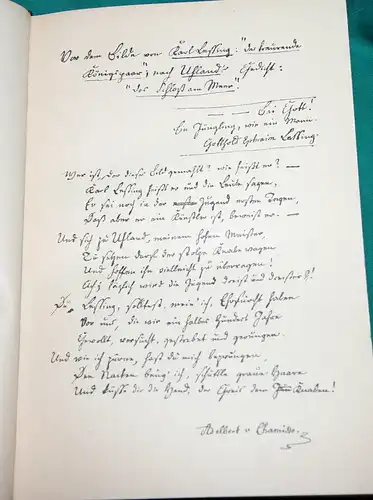 Vor dem Bilde von Karl Lessing: "Das trauernde
Königspaar", nach Uhlands Gedicht:
"Das Schloß am Meer".
— — Bei Gott!
Ein Jüngling, wie ein Mann.
Gotthold Ephraim Lessing.
Wer ist, der dieses Bild gemahlt? wie heißt er? —
Karl Lessing heißt er und die Leute sagen,
Er sei noch in der Jugend ersten Tagen,
Daß aber er ein Künstler ist, beweist er. —
Und sich zu Uhland, meinem hohen Meister,
Zu setzen darf der stolze Knabe wagen
Und hoffen ihn vielleicht zu überragen!
Ach! täglich wird die Jugend dreist und dreister!
Du, Lessing, solltest, mein' ich, Ehrfurcht haben
Vor uns, die wir ein halbes Hundert Jahre
Gewollt, versucht, gestrebet und gerungen.
Und wie ich zürne, hast du mich bezwungen,
Den Nacken beug' ich, schüttle graue Haare
Und küsse dir die Hand, der Greis dem Knaben!
Adelbert v Chamisso.